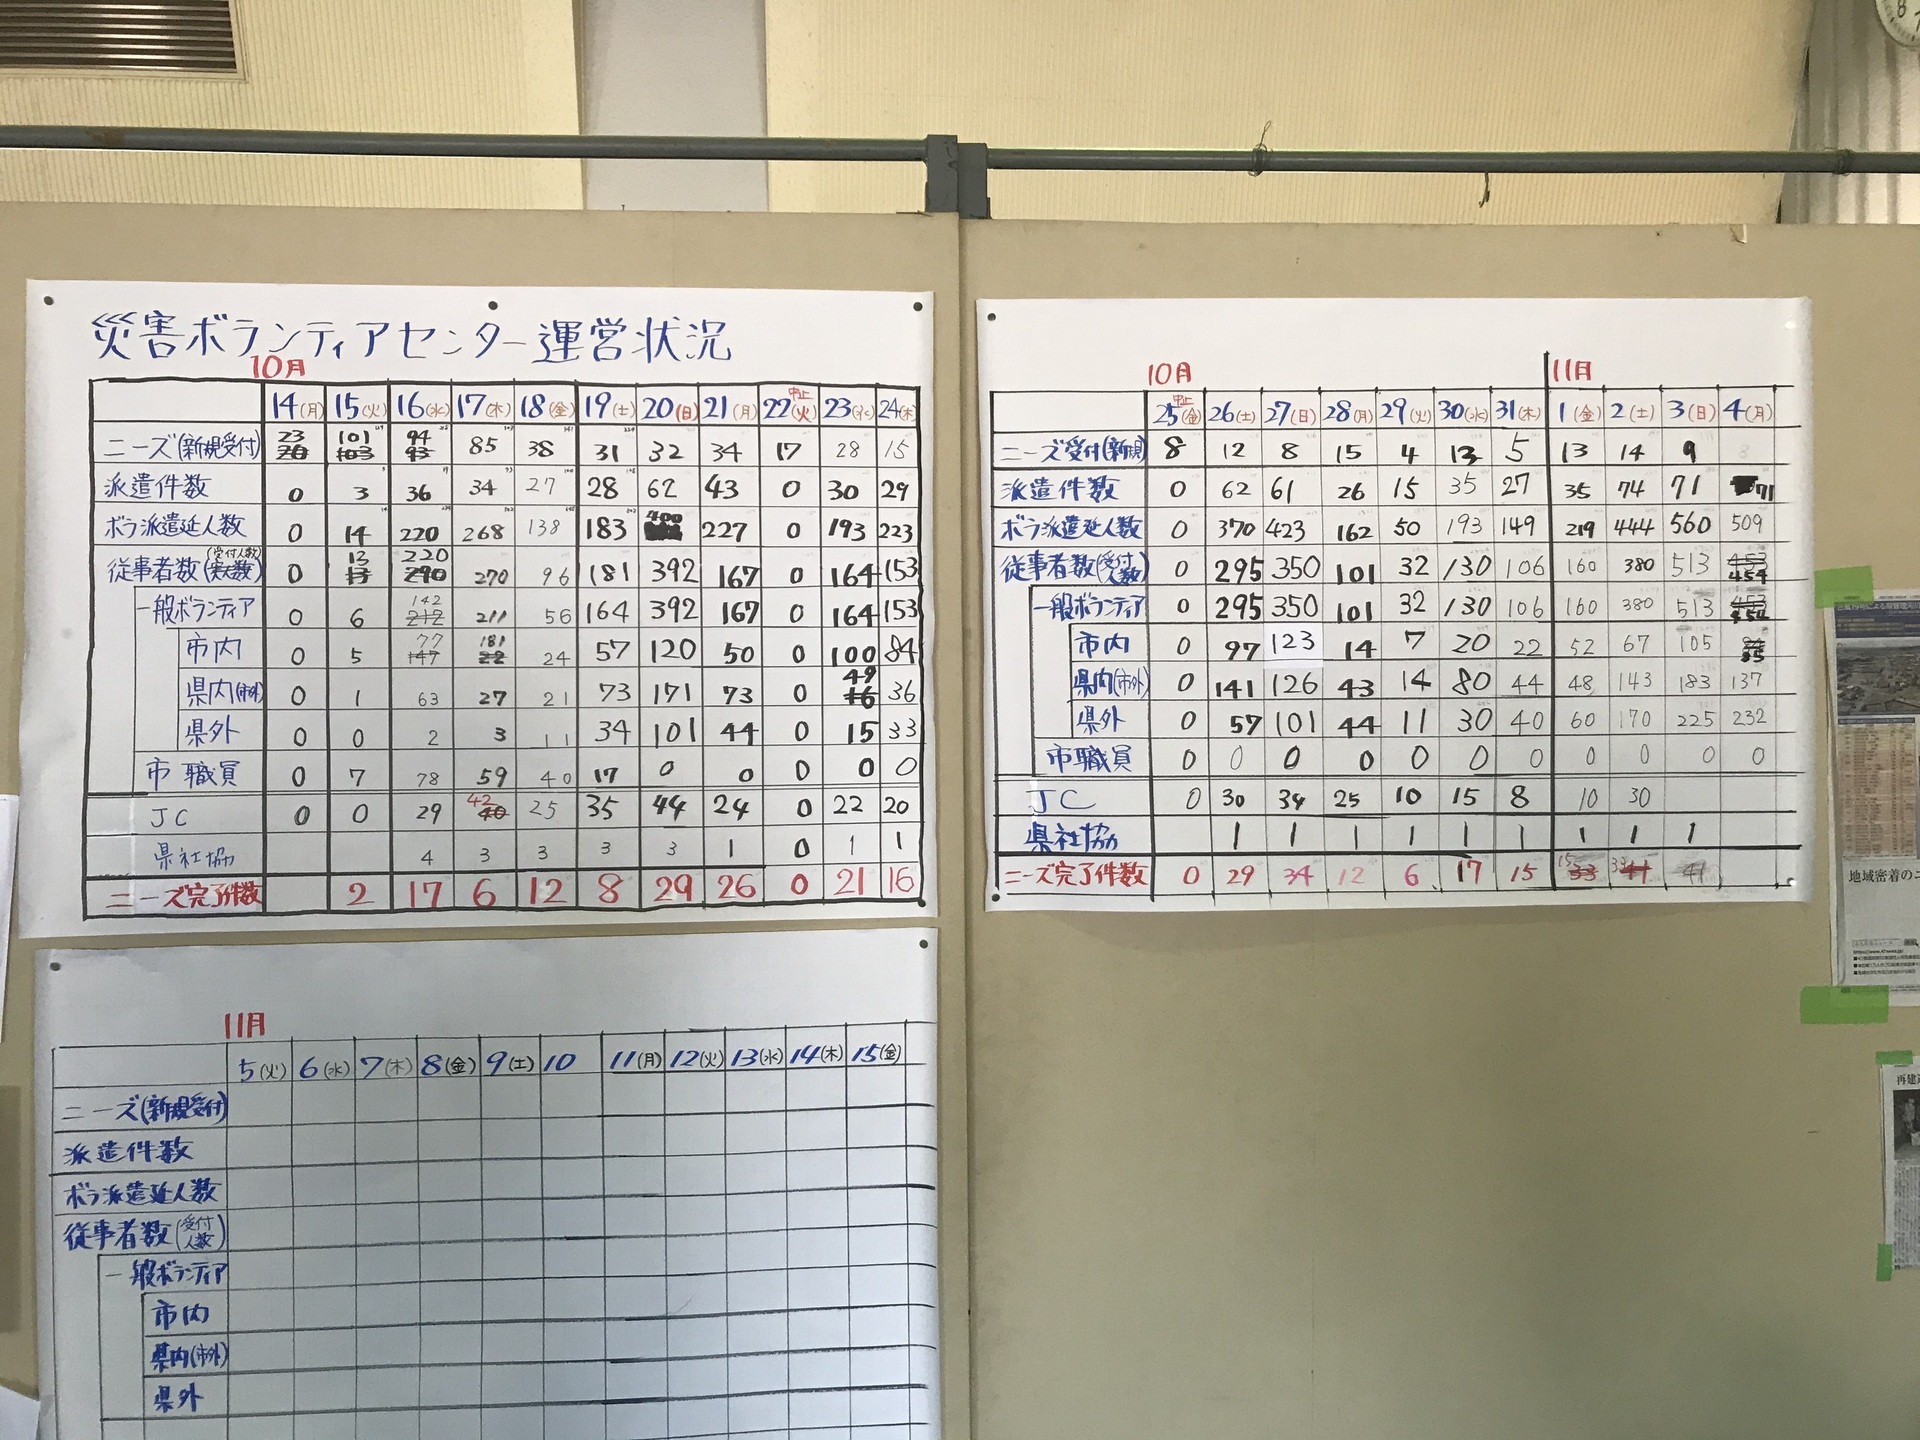 災害ボランティアセンター運営状況
10月
14(月) 15(火) 16(水) 17(木) 18(金) 19(土) 20(日) 21(月) 中止 22(火) 23(水) 24(木)
ニーズ(新規受付) 23 20 101 103 94 93 85 38 31 32 34 17 28 15
派遣件数 0 3 36 34 27 28 62 43 0 30 29
ボラ派遣延人数 0 14 220 268 138 183 400 227 0 193 223
従事者数(受付人数) 0 13 13 220 290 270 96 181 392 167 0 164 153
一般ボランティア 0 6 142 212 211 56 164 392 167 0 164 153
市内 0 5 77 147 181 22 24 57 120 50 0 100 84
県内(市外) 0 1 63 27 21 73 171 73 0 49 16 36
県外 0 0 2 3 11 34 101 44 0 15 33
市職員 0 7 78 59 40 17 0 0 0 0 0
JC 0 0 29 42 40 25 35 44 24 0 22 20
県社協 4 3 3 3 3 1 0 1 1
ニーズ完了件数 2 17 6 12 8 29 26 0 21 16
10月 11月
中止 25(金) 26(土) 27(日) 28(月) 29(火) 30(水) 31(木) 1(金) 2(土) 3(日) 4(月)
ニーズ受付(新規) 8 12 8 15 4 13 5 13 14 9
派遣件数 0 62 61 26 15 35 27 35 74 71 71
ボラ派遣延人数 0 370 423 162 50 193 149 219 444 560 509
従事者数(受付人数) 0 295 350 101 32 130 106 160 380 513 453 454
一般ボランティア 0 295 350 101 32 130 106 160 380 513 453 454
市内 0 97 123 14 7 20 22 52 67 105 84 85
県内(市外) 0 141 126 43 14 80 44 48 143 183 137
県外 0 57 101 44 11 30 40 60 170 225 232
市職員 0 0 0 0 0 0 0 0 0 0 0
JC 0 30 34 25 10 15 8 10 30
県社協 1 1 1 1 1 1 1 1 1
ニーズ完了件数 0 29 34 12 6 17 15 15 33 39 41 41
11月
5(火) 6(水) 7(木) 8(金) 9(土) 10 11(月) 12(火) 13(水) 14(木) 15(金)
ニーズ(新規受付)
派遣件数
ボラ派遣延人数
従事者数(受付人数)
一般ボランティア
市内
県内(市外)
県外
地域密着のニ
再建